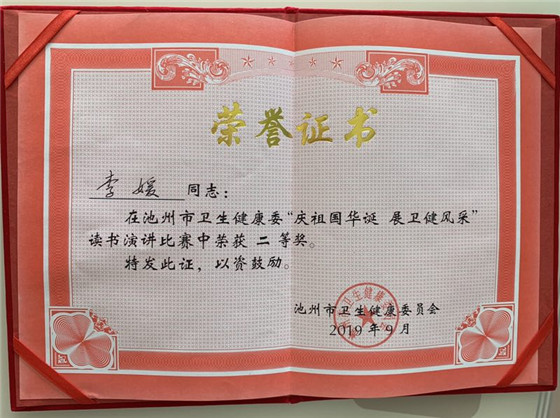 荣誉证书
李媛 同志：
在池州市卫生健康委“庆祖国华诞 展卫健风采”
读书演讲比赛中荣获 二 等奖。
特发此证，以资鼓励。
池州市卫生健康委员会
2019 年 9 月